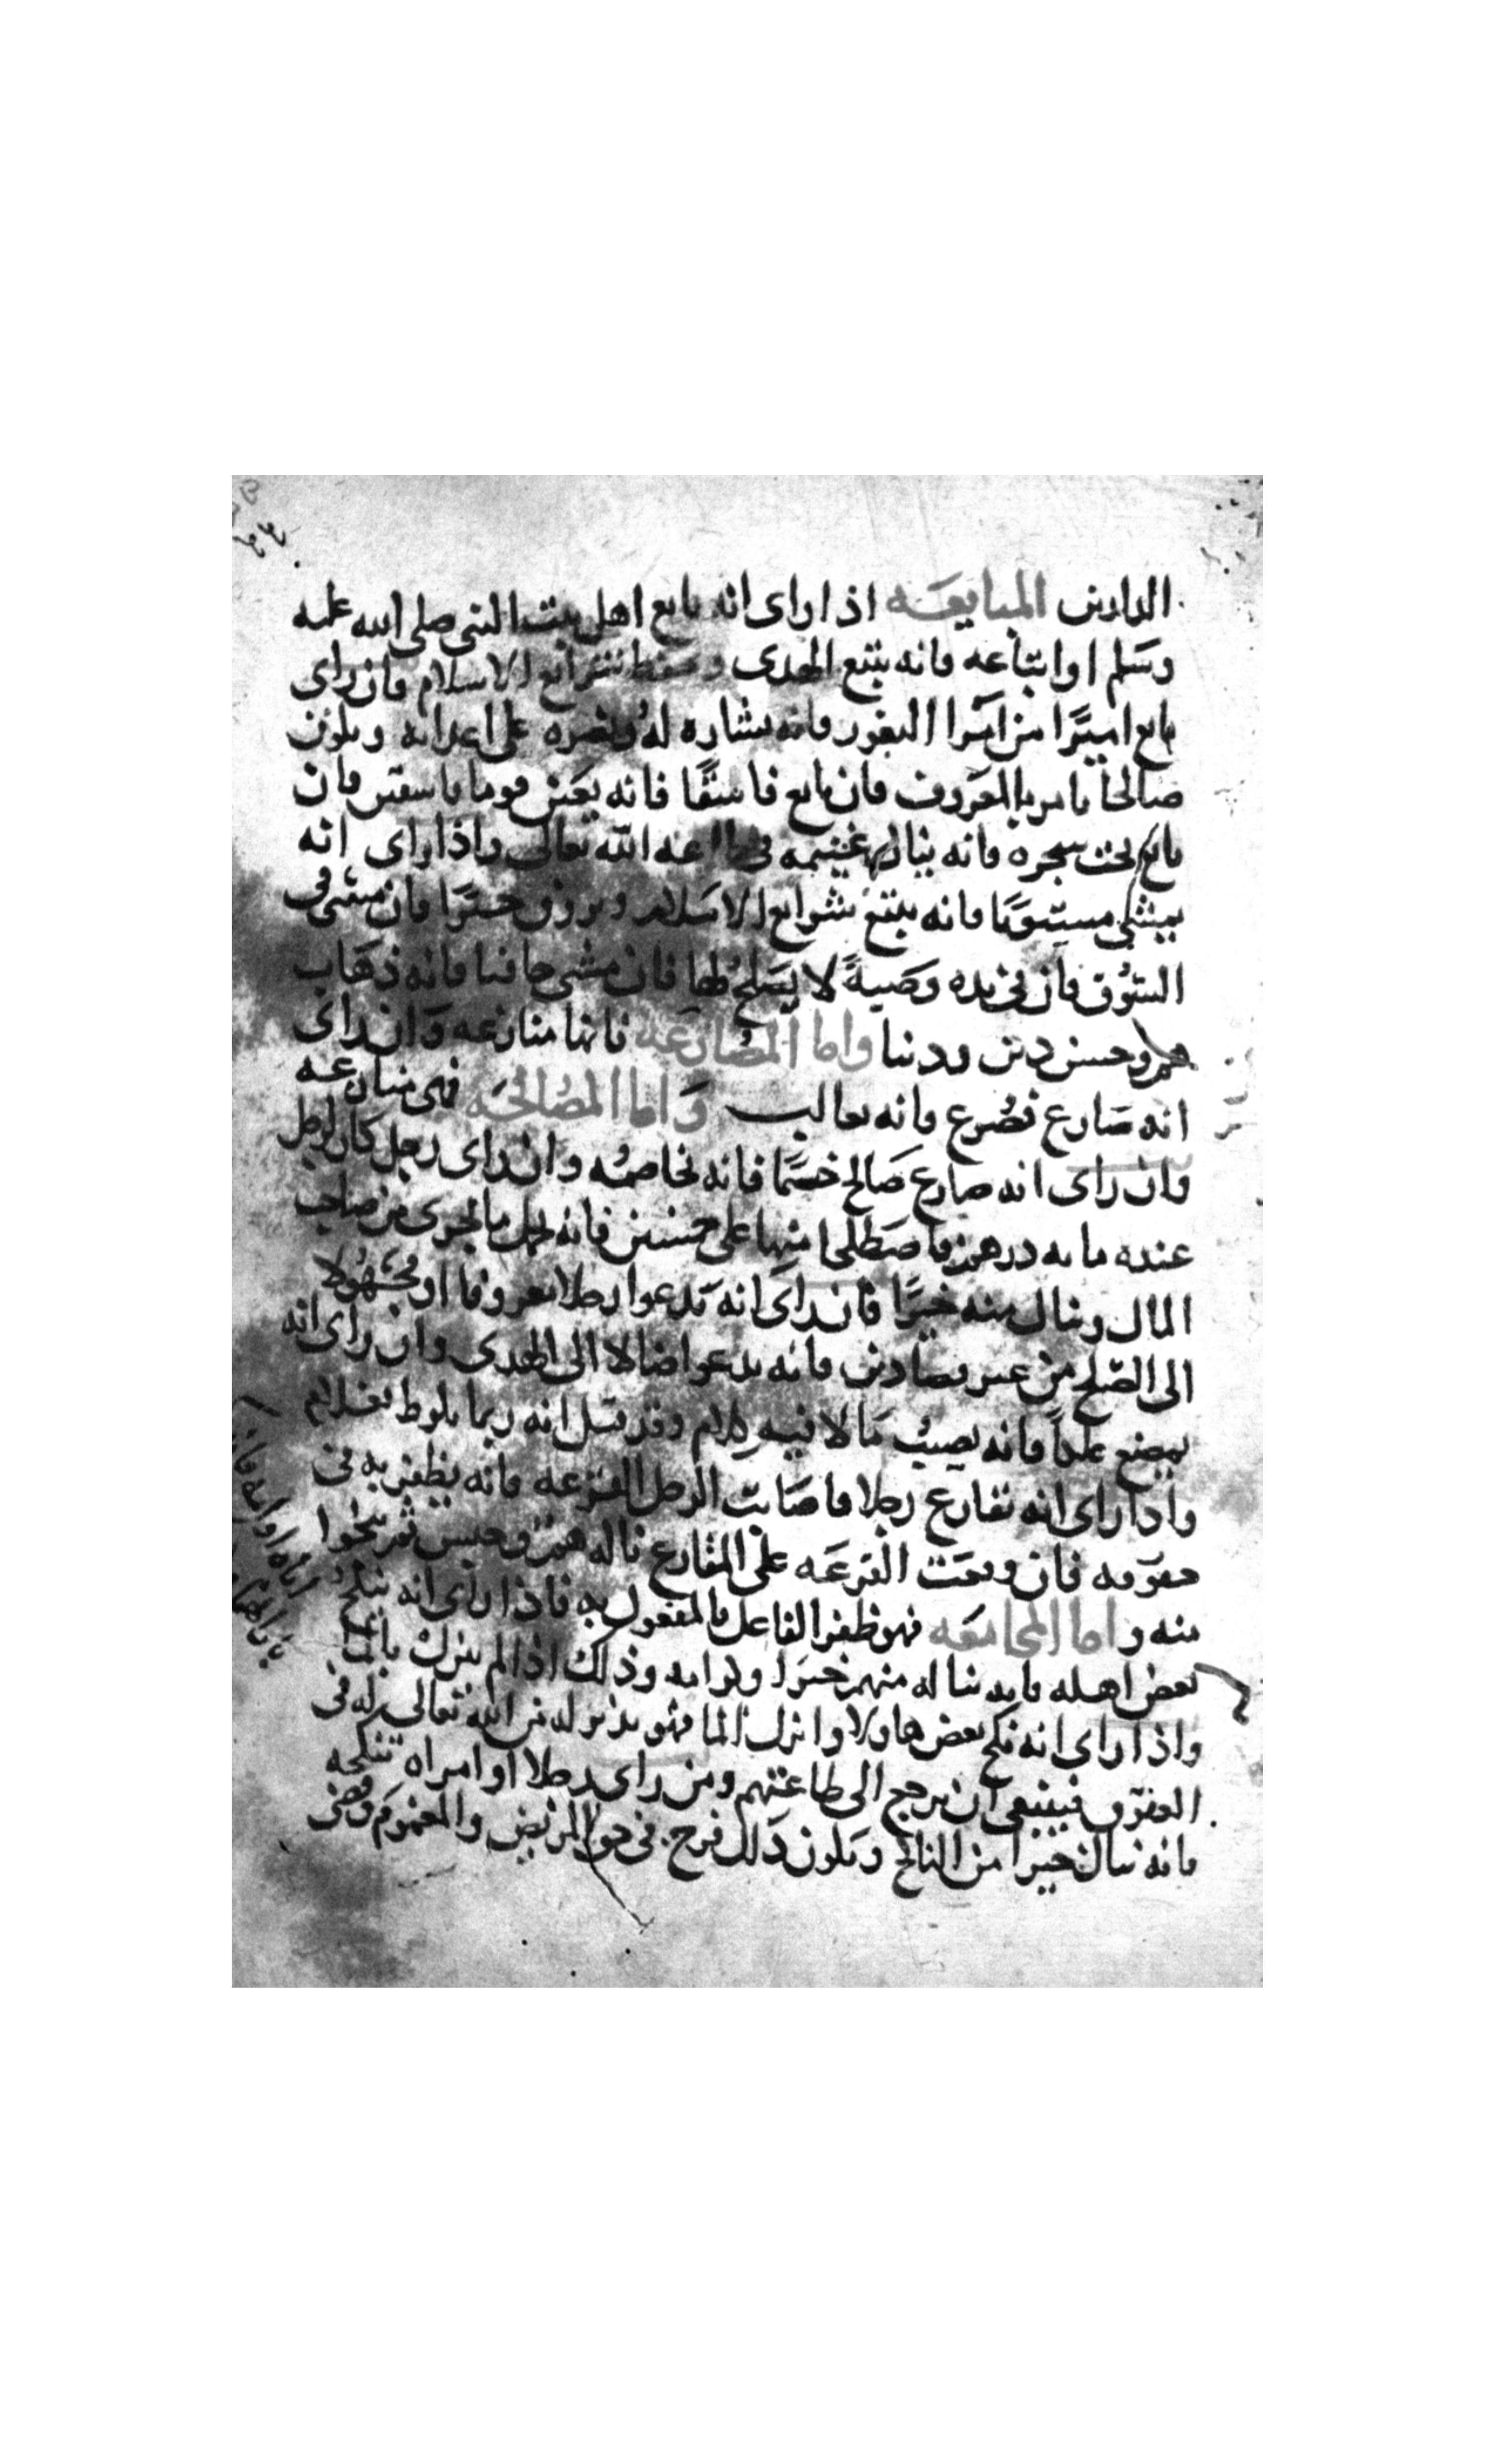 الدارين المبايعه اذا راى انه بايع اهل بيت النبي صلى الله عليه
وسلم او اتباعه فانه يتبع الهدى وحفظ شرايع الاسلام فان راى
بايع اميرا من امرا الثغور فانه بشاره له ونصره على اعدائه ويكون
صالحا يامر بالمعروف فان بايع فاسقا فانه يعين قوما فاسقين فان
بايع تحت شجره فانه ينال غنيمه في طاعه الله تعالى واذا راى انه
يمشي مستويا فانه يتبع شرايع الاسلام ويرزق خيرا فان مشى في
السوق فان في يده وصية لا يصلح لها فان مشى حافيا فانه ذهاب
هم وحسن دين ودنيا واما المصارعه فانها منازعه وان راى
انه صارع فصرع فانه يغالب واما المصالحه فهي منازعه
وان راى انه صارع صالح خصما فانه يخاصمه وان راى رجل كان لرجل
عنده مايه درهم فاصطلحا منها على خمسين فانه
المال وينال منه خيرا فان راى انه يدعوا رجلا معروفا او مجهولا
الى الصلح من غير دين فانه يدعوا ضالا الى الهدى وان راى انه
يمضغ علكا فانه يصيب مالا فيه كلام وقد قيل انه ربما يلوط بغلام
واذا راى انه يقارع رجلا فاصابت الرجل القرعه فانه يظفر به في
حقوقه فان وقعت القرعه على المقارع ناله هم وحبس ثم ينجوا
منه واما المجامعه فهو ظفر الفاعل بالمفعول به فاذا راى انه ينكح
بعض اهله فانه يناله منهم خيرا وكرامه وذلك اذا لم ينزل بالما
واذا راى انه نكح بعض هاولا وانزل الما فهو نذير له من الله تعالى له في
العقوق فينبغي ان يرجع الى طاعتهم ومن راى رجلا او امراه تنكحه
فانه ينال خيرا من الناكح ويكون ذلك فرح في حق المريض والمغموم وقضى